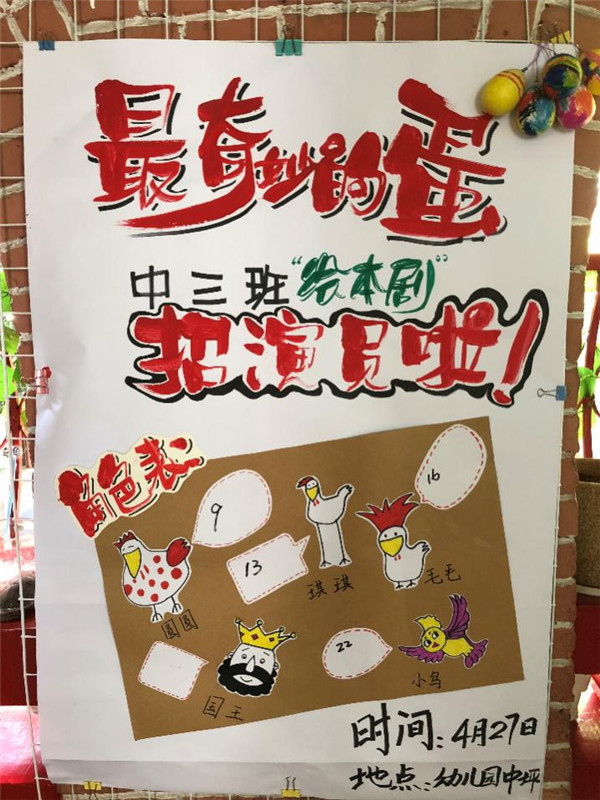 最奇妙的蛋
中三班“绘本剧”
招演员啦！
角色表
9
16
13
圆圆
琪琪
毛毛
22
国王
小鸟
时间：4月27日
地点：幼儿园中坪